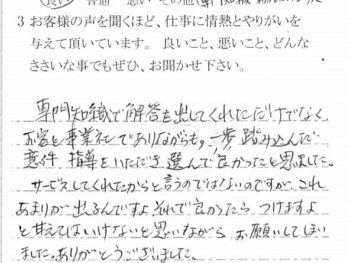 良い 普通 悪い その他
3 お客様の声を聞くほど、仕事に情熱とやりがいを
与えて頂いています。 良いこと、悪いこと、どんな
ささいな事でもぜひ、お聞かせ下さい。
専門知識で解答を出してくれただけでなく
お客と事業社でありながらも、一歩踏み込んだ
意件、指導をいただき選んで良かったと思いました。
サービスしてくれたからと言うのではないのですが、これ
あまりが出るんですよ それで良かったら つけますよ
と甘えてはいけないと思いながら お願いしてしまい
ました。ありがとうございました。